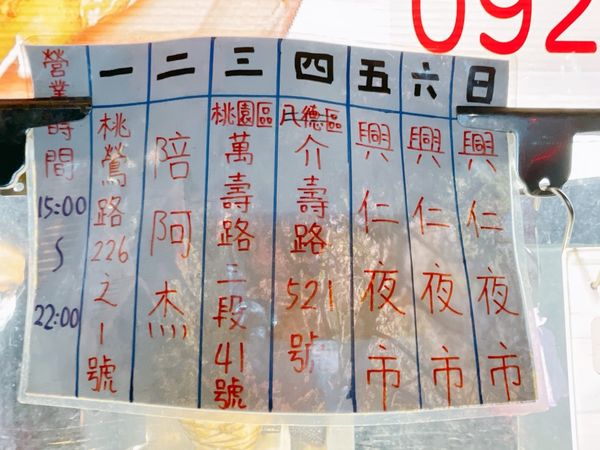 092
營業時間
15:00
S
22:00
一
桃鶯路226之1號
二
陪阿杰
三
桃園區
萬壽路二段41號
四
八德區
介壽路521號
五
興仁夜市
六
興仁夜市
日
興仁夜市